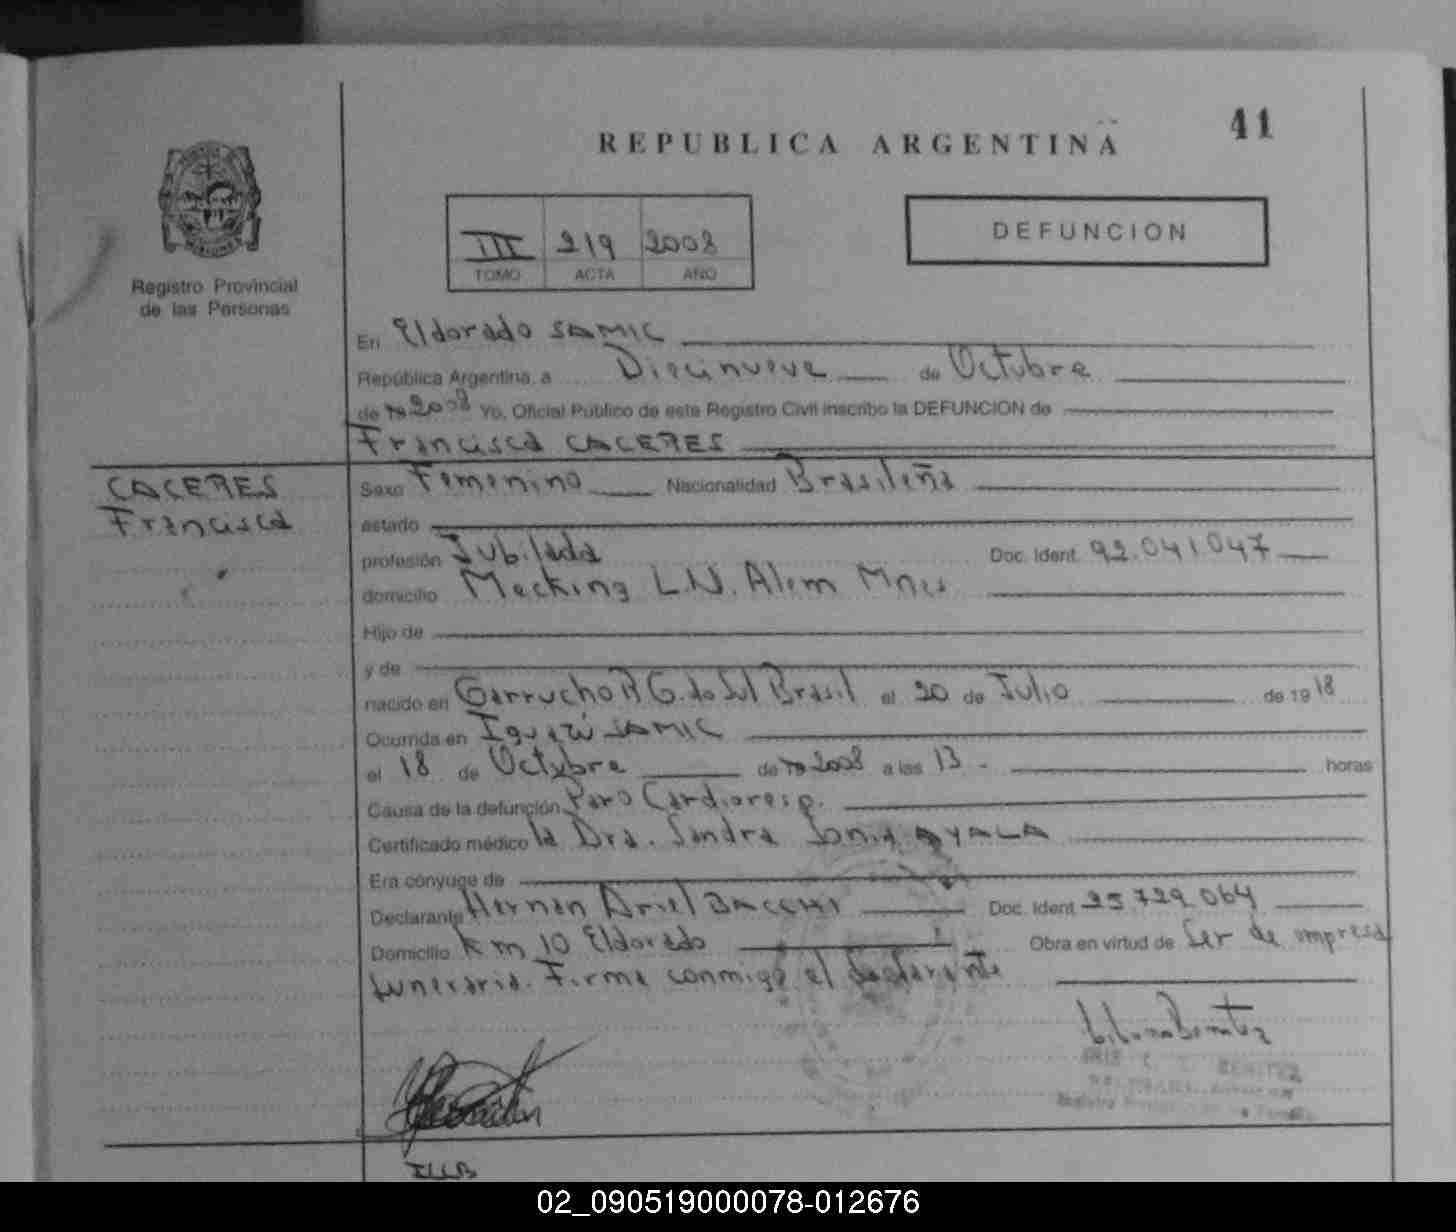 41
REPUBLICA ARGENTINA
III 219 2008
TOMO ACTA AÑO
DEFUNCION
Registro Provincial
de las Personas
En Eldorado SAMIC
República Argentina, a Diecinueve de Octubre
de 19 2008 Yo, Oficial Público de este Registro Civil inscribo la DEFUNCION de
Francisca CACERES
CACERES
Francisca
Sexo Femenino Nacionalidad Brasileña
estado
profesión Jubilada Doc. Ident. 92.041.047
domicilio Mecking L.N. Alem Mnes
Hijo de
y de
nacido en Garrucho R G. do Sul Brasil el 20 de Julio de 19 18
Ocurrida en Iguazú SAMIC
el 18 de Octubre de 19 2008 a las 13 - horas
Causa de la defunción Paro Cardioresp.
Certificado médico la Dra. Sandra Sonia AYALA
Era cónyuge de
Declarante Hernan Ariel BACCHI Doc. Ident 25.729.064
Domicilio Km 10 Eldorado Obra en virtud de Ser de empresa
funeraria. Firma conmigo el declarante
BENITEZ
Registro
02_090519000078-012676